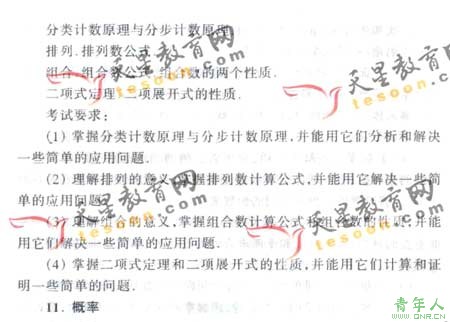 分类计数原理与分步计数原理.
排列.排列数公式.
组合.组合数公式.组合数的两个性质.
二项式定理.二项展开式的性质.
考试要求:
(1) 掌握分类计数原理与分步计数原理,并能用它们分析和解决
一些简单的应用问题.
(2) 理解排列的意义,掌握排列数计算公式,并能用它解决一些简
单的应用问题.
(3) 理解组合的意义,掌握组合数计算公式和组合数的性质,并能
用它们解决一些简单的应用问题.
(4) 掌握二项式定理和二项展开式的性质,并能用它们计算和证
明一些简单的问题.
11. 概率
天星教育网
tesoon.com
天星教育网
tesoon.com
天星教育网
tesoon.com
天星教育网
tesoon.com
青年人
WWW.QNR.CN